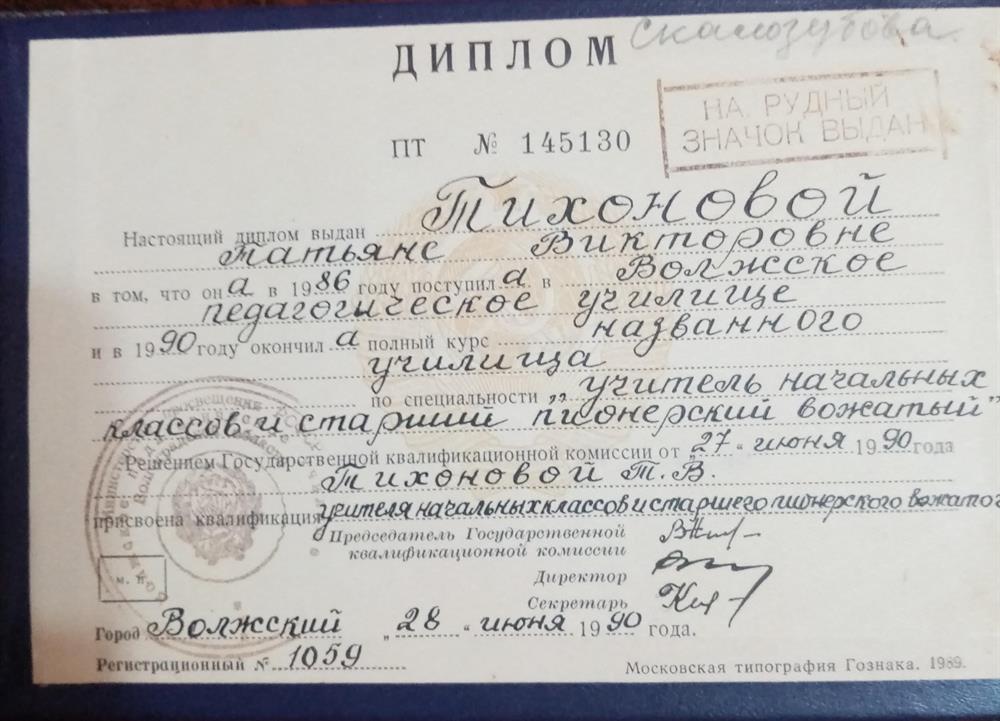 Скалозубова
ДИПЛОМ
НА РУДНЫЙ
ЗНАЧОК ВЫДАН
ПТ № 145130
Настоящий диплом выдан Тихоновой
Татьяне Викторовне
в том, что она в 1986 году поступила в Волжское
педагогическое училище
и в 1990 году окончила полный курс названного
училища
по специальности „учитель начальных
классов и старший пионерский вожатый"
Решением Государственной квалификационной комиссии от „27" июня 1990 года
Тихоновой Т.В.
присвоена квалификация учителя начальных классов и старшего пионерского вожатог
Председатель Государственной
квалификационной комиссии
Директор
Секретарь
м. п.
Город Волжский „28" июня 1990 года.
Регистрационный № 1059
Московская типография Гознака. 1989.